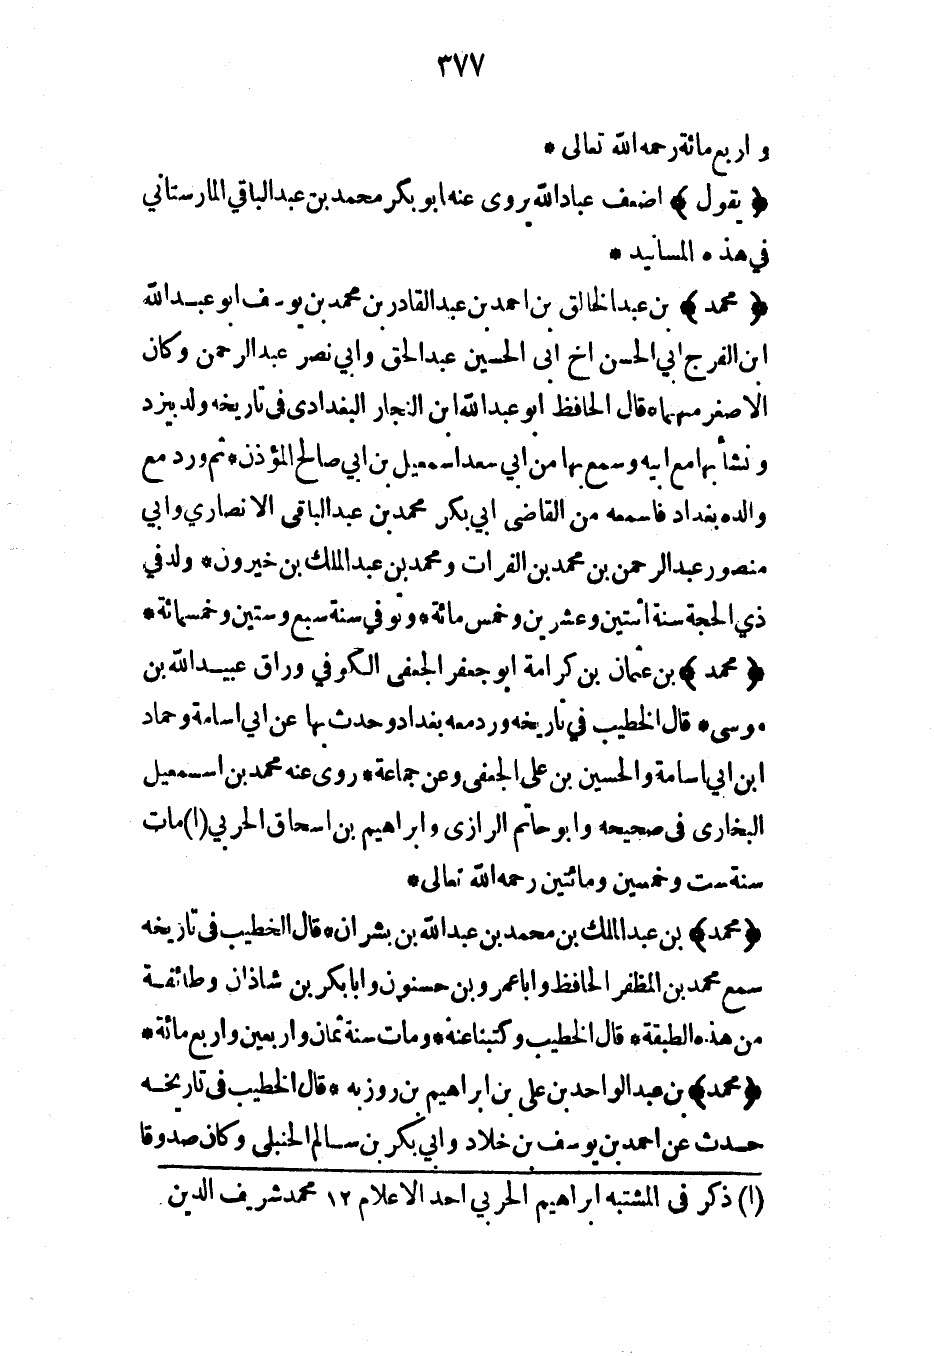 ٣٧٧
و اربع مائة رحمه الله تعالى *
﴿ يقول ﴾ اضعف عباد الله يروى عنه ابو بكر محمد بن عبد الباقي المارستاني
في هذه المسانيد *
﴿ محمد ﴾ بن عبد الخالق بن احمد بن عبد القادر بن محمد بن يوسف ابو عبد الله
ابن الفرج ابي الحسن اخ ابى الحسين عبد الحق وابي نصر عبد الرحمن وكان
الاصغر منهما * قال الحافظ ابو عبد الله ابن النجار البغدادى فى تاريخه ولد بيزد
ونشأ بها مع ابيه وسمع بها من ابي سعد اسمعيل بن ابي صالح المؤذن * ثم ورد مع
والده بغداد فاسمعه من القاضى ابي بكر محمد بن عبد الباقى الانصاري وابي
منصور عبد الرحمن بن محمد بن الفرات و محمد بن عبد الملك بن خيرون * ولد في
ذي الحجة سنة اثنتين وعشرين وخمس مائة * وتوفي سنة سبع وستين وخمسمائة *
﴿ محمد ﴾ بن عثمان بن كرامة ابو جعفر الجعفى الكوفي وراق عبيد الله بن
موسى * قال الخطيب في تاريخه ورد معه بغداد وحدث بها عن ابي اسامة وحماد
ابن ابي اسامة والحسين بن على الجعفى وعن جماعة * روى عنه محمد بن اسمعيل
البخارى فى صحيحه وابو حاتم الرازى وابراهيم بن اسحاق الحربي (١) مات
سنة ست وخمسين ومائتين رحمه الله تعالى *
﴿ محمد ﴾ بن عبد الملك بن محمد بن عبد الله بن بشران * قال الخطيب فى تاريخه
سمع محمد بن المظفر الحافظ وابا عمرو بن حسنون وابا بكر بن شاذان وطائفة
من هذه الطبقة * قال الخطيب وكتبنا عنه * ومات سنة ثمان واربعين واربع مائة *
﴿ محمد ﴾ بن عبد الواحد بن على بن ابراهيم بن روزبه * قال الخطيب فى تاريخه
حدث عن احمد بن يوسف بن خلاد وابي بكر بن سالم الحنبلى وكان صدوقا
(١) ذكر فى المشتبه ابراهيم الحربي احد الاعلام ١٢ محمد شريف الدين